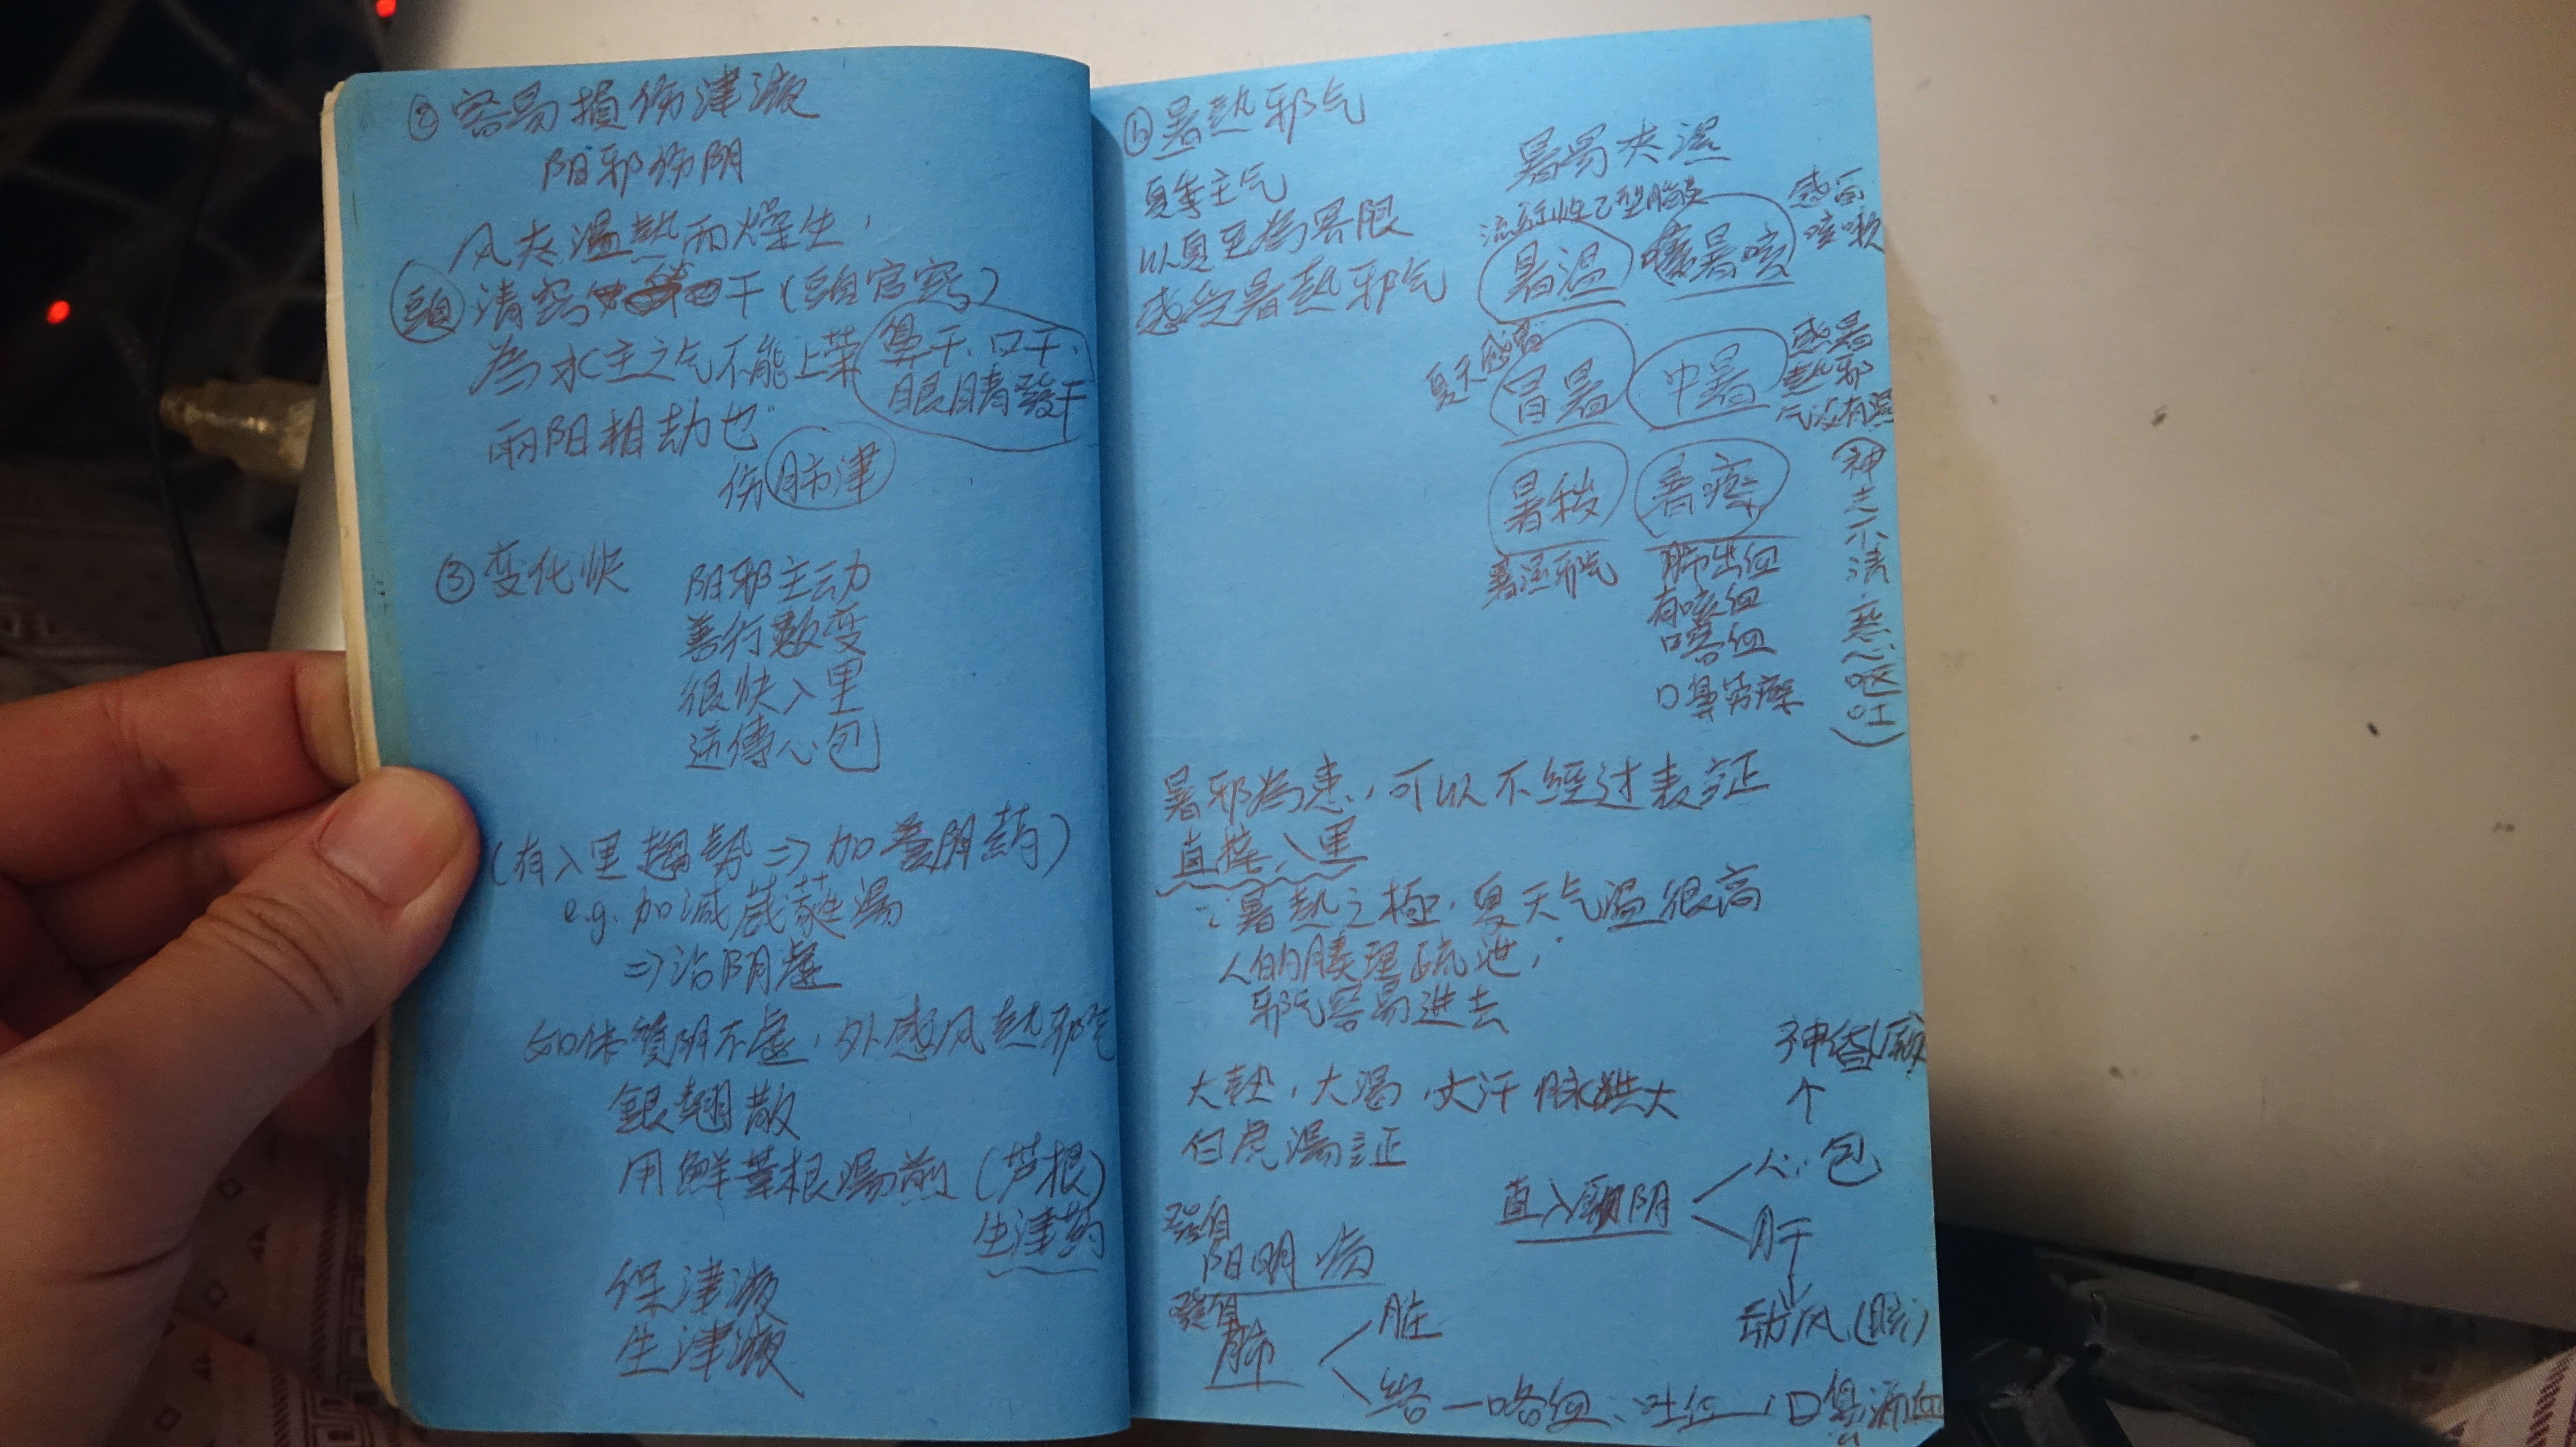 ② 容易損伤津液
阳邪伤阴
风夹温热而燥生,
頭 清窍干(頭官窍)
為水主之气不能上荣
鼻干、口干、
眼睛發干
兩阳相劫也"
伤肺津
③ 变化快
阳邪主动
善行數变
很快入里
逆傳心包
(有入里趨勢⇒加養阴葯)
e.g. 加減葳蕤湯
⇒治阴虛
如体質阴不虛,外感风热邪气
銀翹散
用鮮葦根湯煎(芦根)
生津药
保津液
生津液
ⓑ 暑熱邪气
夏季主气
以夏至為界限
感受暑熱邪气
暑易夹湿
流行性乙型脑炎
暑温
暑咳
感冒
咳嗽
夏天感冒
冒暑
中暑
感暑
熱邪
气没有濕
(神志不清,惡心呕吐)
暑秽
暑瘵
暑湿邪气
肺出血
有咳血
咯血
暑邪為患,可以不經过表証
直接入里
∵暑熱之極,夏天气温很高
人的腠理疏泄,
邪气容易進去
大熱,大渴,大汗 脉洪大
白虎湯証
發自
阳明病
發自
肺
脏
络—咯血、吐血、口鼻涌血
直入厥阴
心包
↑
神昏
肝
↓
动风